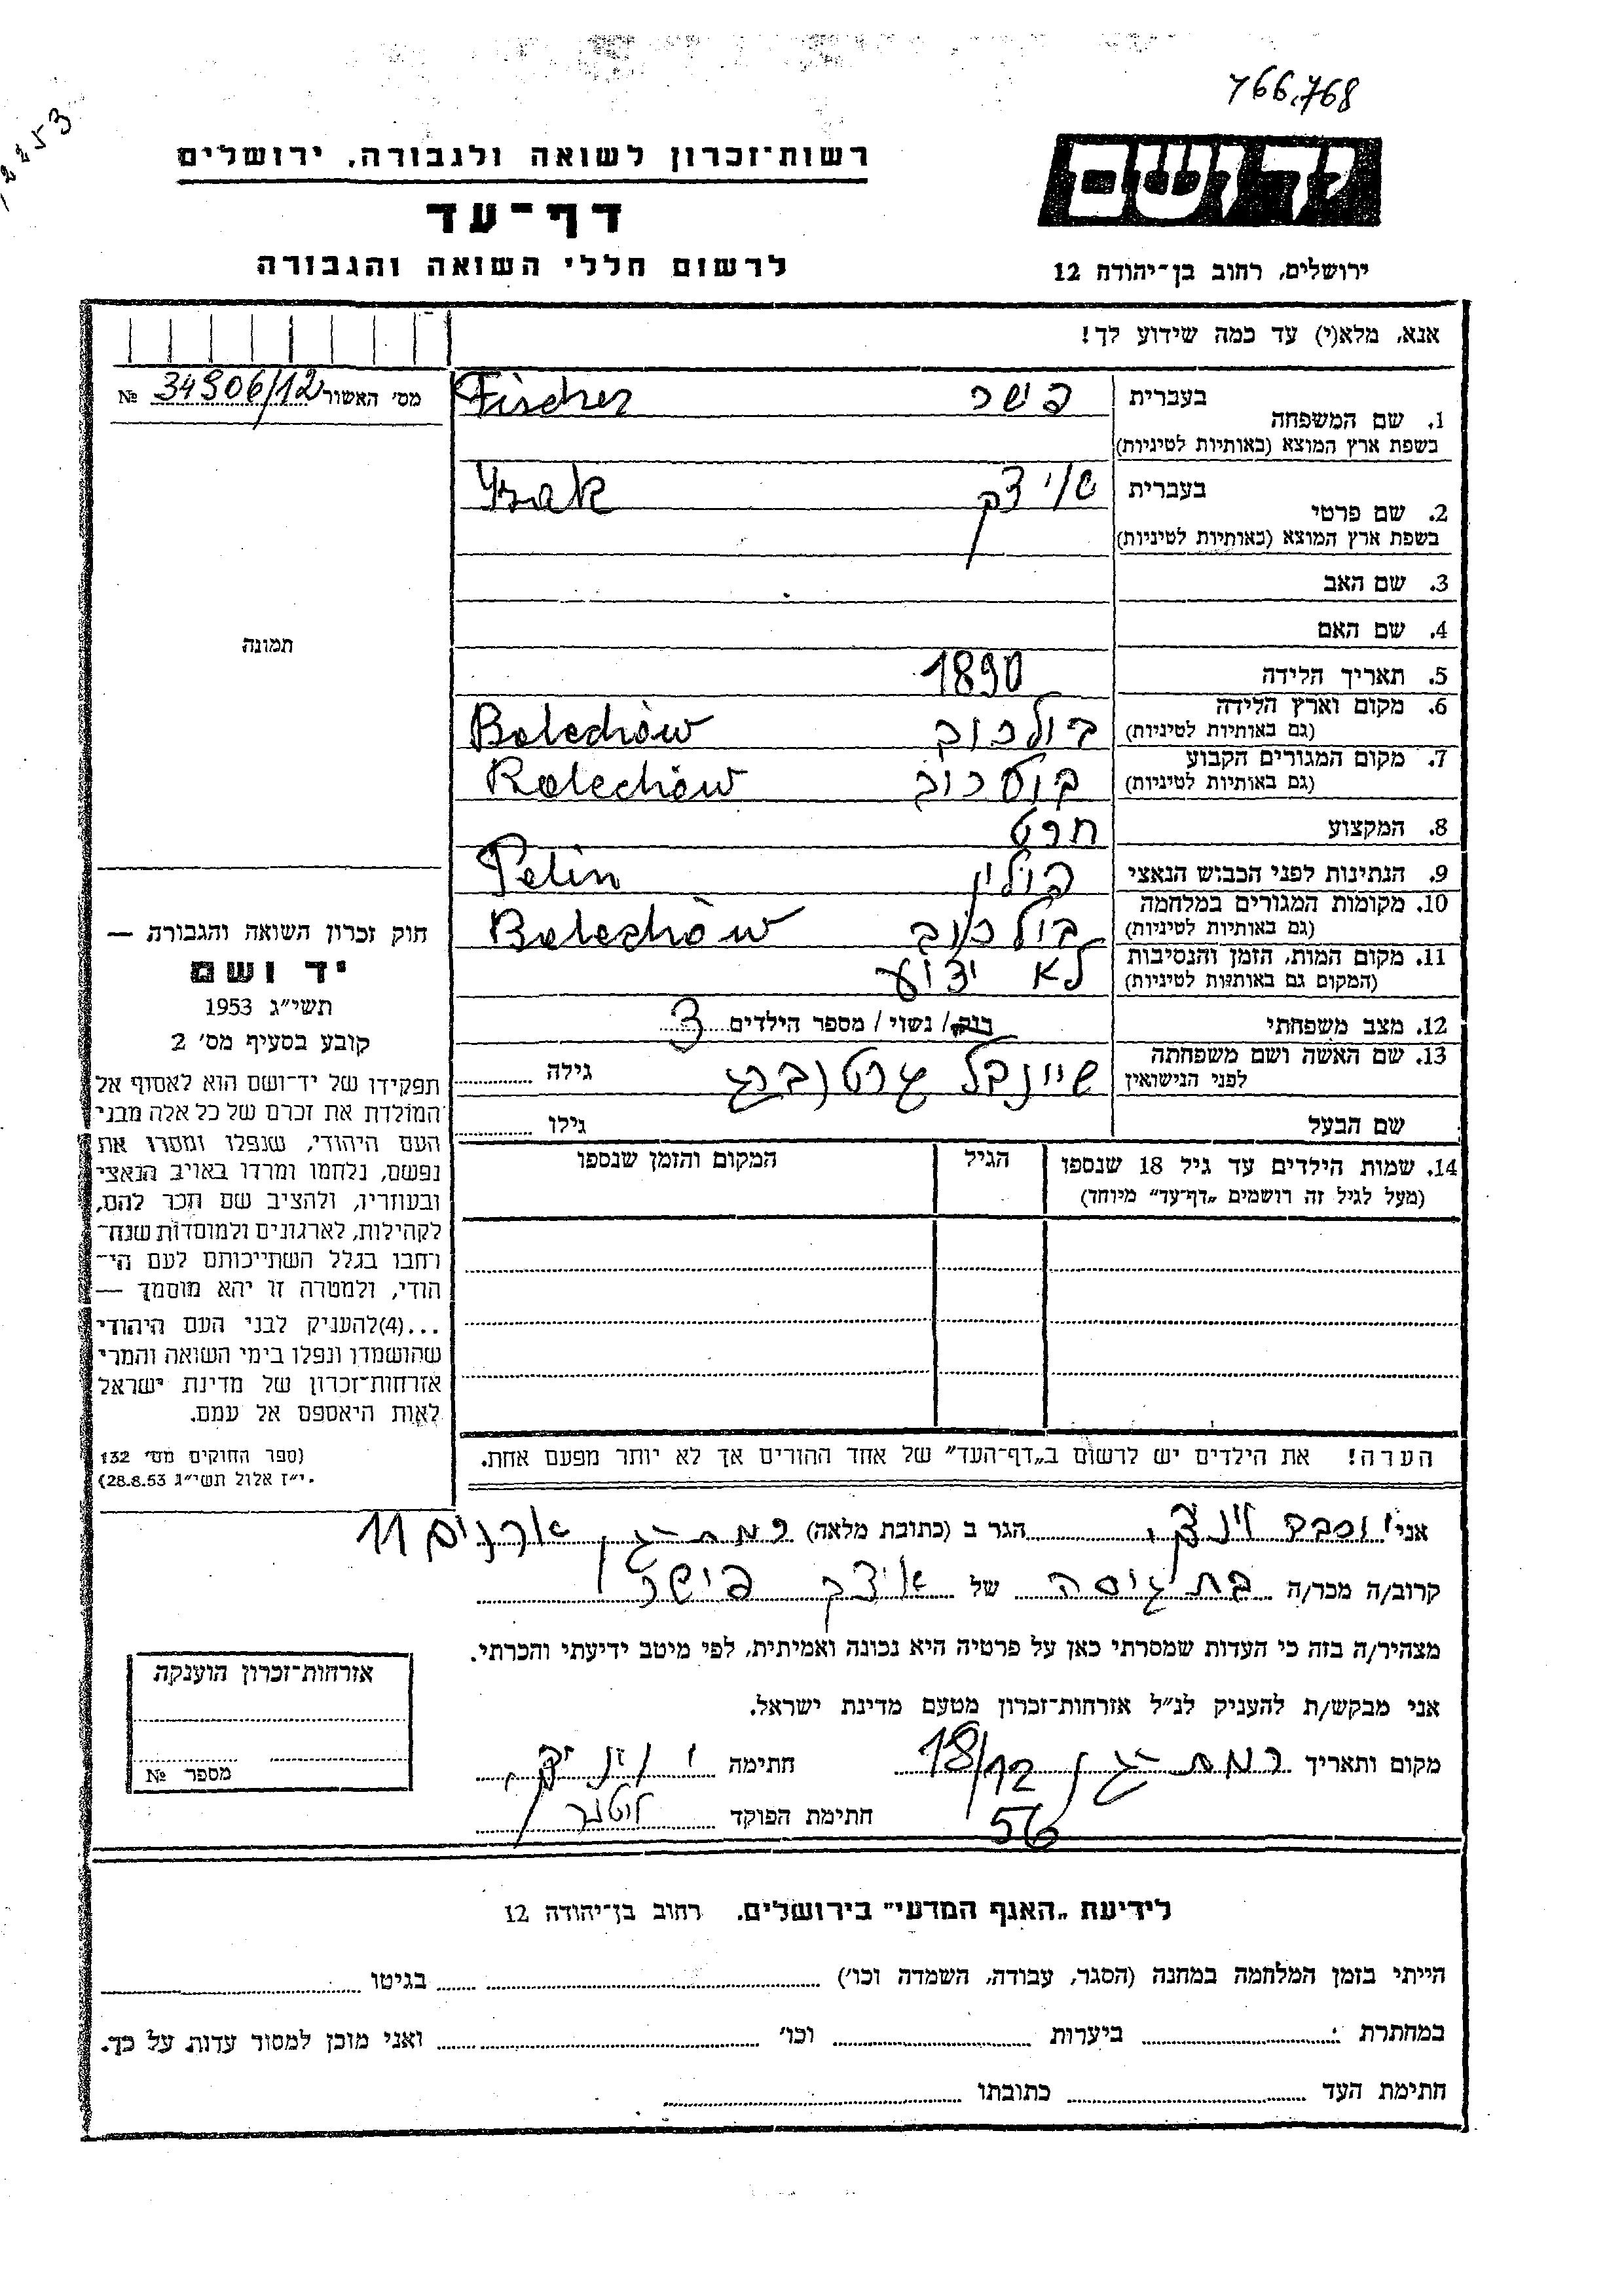 766,768
רשות־זכרון לשואה ולגבורה, ירושלים
דף־עד
לרשום חללי השואה והגבורה
ידושם
ירושלים, רחוב בן־יהודה 12
אנא, מלא(י) עד כמה שידוע לך!
מס׳ האשור 34906/12 №
תמונה
1. שם המשפחה
בעברית פשר Fischer
בשפת ארץ המוצא (באותיות לטיניות)
2. שם פרטי
בעברית Ysak
בשפת ארץ המוצא (באותיות לטיניות)
3. שם האב
4. שם האם
5. תאריך הלידה 1890
6. מקום וארץ הלידה בולכוב Bolechów
(גם באותיות לטיניות)
7. מקום המגורים הקבוע בולכוב Bolechów
(גם באותיות לטיניות)
8. המקצוע חרט
9. הנתינות לפני הכבוש הנאצי פולין Polin
10. מקומות המגורים במלחמה בולכוב Bolechów
(גם באותיות לטיניות)
11. מקום המות, הזמן והנסיבות לא ידוע
(המקום גם באותיות לטיניות)
12. מצב משפחתי רוק/ נשוי/ מספר הילדים 3
13. שם האשה ושם משפחתה שיינדל גרטנברג גילה
לפני הנישואין
שם הבעל גילו
14. שמות הילדים עד גיל 18 שנספו הגיל המקום והזמן שנספו
(מעל לגיל זה רושמים „דף־עד״ מיוחד)
הערה! את הילדים יש לרשום ב„דף־העד״ של אחד ההורים אך לא יותר מפעם אחת.
חוק זכרון השואה והגבורה —
יד ושם
תשי״ג 1953
קובע בסעיף מס׳ 2
תפקידו של יד־ושם הוא לאסוף אל
המולדת את זכרם של כל אלה מבני
העם היהודי, שנפלו ומסרו את
נפשם, נלחמו ומרדו באויב הנאצי
ובעוזריו, ולהציב שם וזכר להם,
לקהילות, לארגונים ולמוסדות שנח־
רחבו בגלל השתייכותם לעם הי־
הודי, ולמטרה זו יהא מוסמך —
...(4) להעניק לבני העם היהודי
שהושמדו ונפלו בימי השואה והמרי
אזרחות־זכרון של מדינת ישראל
לאות היאספם אל עמם.
(ספר החוקים מס׳ 132
י״ז אלול תשי״ג 28.8.53)
אני יוכבד הגר ב (כתובת מלאה) רמת גן ארנים 11
קרוב/ה מכר/ה בת גיסה של איצק פישר
מצהיר/ה בזה כי העדות שמסרתי כאן על פרטיה היא נכונה ואמיתית, לפי מיטב ידיעתי והכרתי.
אני מבקש/ת להעניק לנ״ל אזרחות־זכרון מטעם מדינת ישראל.
מקום ותאריך רמת גן 18/12 56 חתימה
חתימת הפוקד
אזרחות־זכרון הוענקה
מספר №
לידיעת „האגף המדעי״ בירושלים. רחוב בן־יהודה 12
הייתי בזמן המלחמה במחנה (הסגר, עבודה, השמדה וכו׳) בגיטו
במחתרת ביערות וכו׳ ואני מוכן למסור עדות על כך.
חתימת העד כתובתו